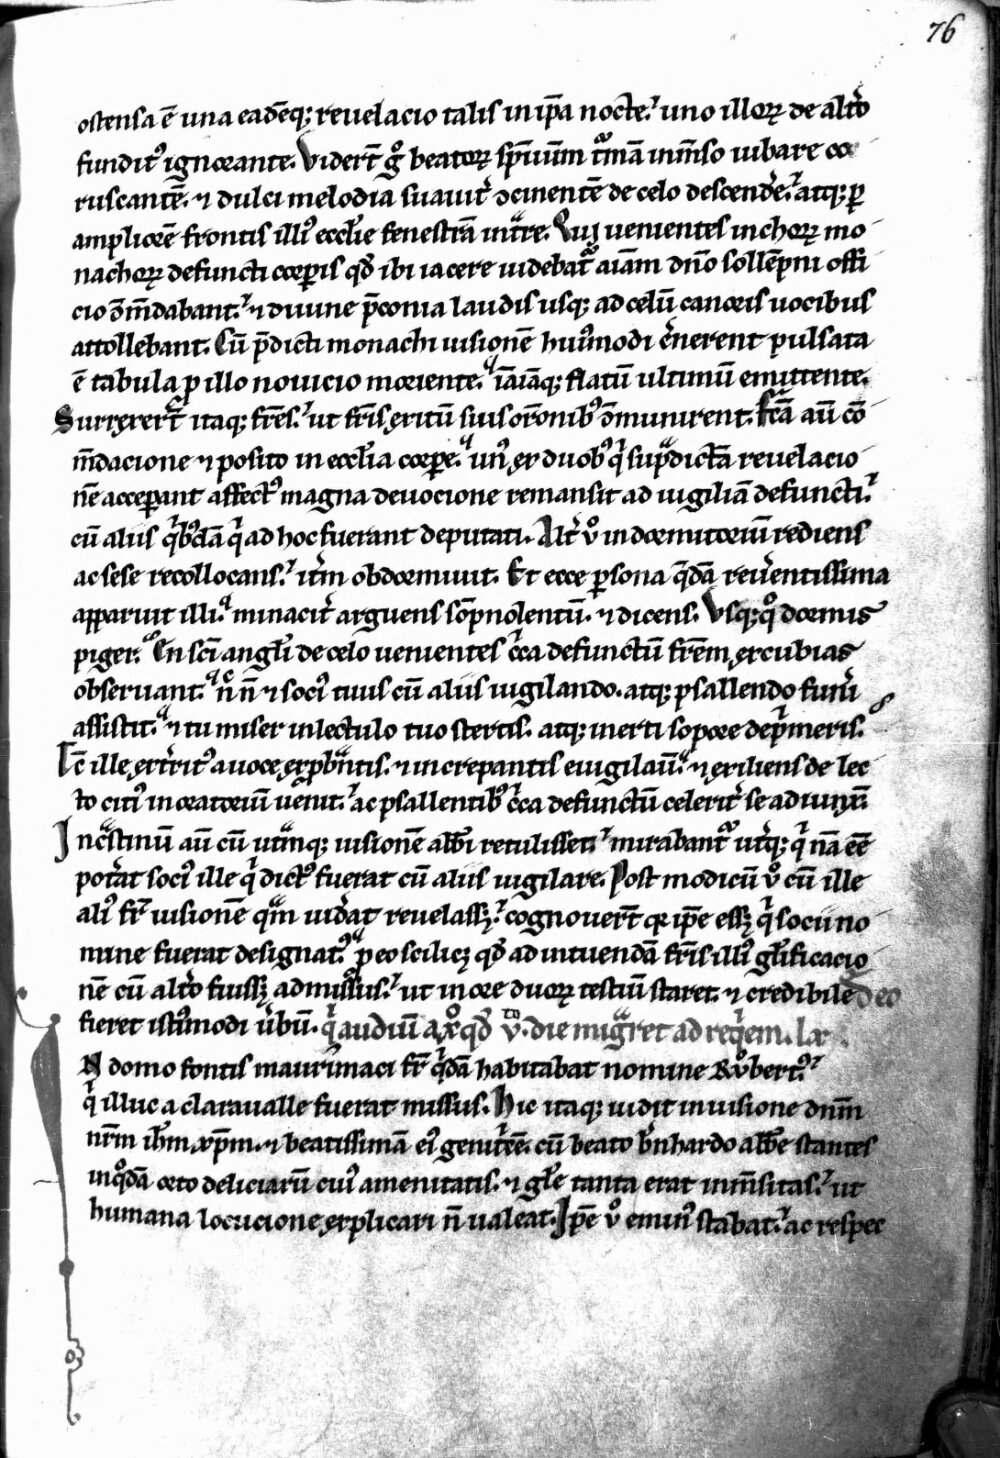 76
ostensa ē una eadēq; reuelacio talis in ip̄a nocte. uno illoꝝ de alt̄o
fundit᷒ ignorante. Viderūt gͦ beatoꝝ sp̄iuūm t̄mā inm̄so iubare co
ruscantē. ⁊ dulci melodia suauit̄ ꝯcinentē de celo descend̄e. atq; ꝑ
ampliorē frontis illi᷒ eccl̄ie fenestrā int̄re. Qui uenientes in choꝝ mo
nachoꝝ defuncti corꝑis qd̄ ibi iacere uidebat᷒ aīam dn̄o sollēpni offi
cio ōm̄dabant. ⁊ diuine p̄conia laudis usq; ad celū canoris uocibus
attollebant. Cū p̄dicti monachi uisionē hui᷒modi c̄nerent pulsata
ē tabula ꝓ illo nouicio moriente. iāiāq; flatū ultimū emittente.
Surrexer̄t itaq; fr̄es. ut fr̄is exitū suis or̄onib᷒ ōmunirent. Fc̄ā aū cō
m̄dacione ⁊ posito in eccl̄ia corꝑe. un᷒ ex duob᷒ qͥ supͣdictā reuelacio
nē acceꝑant affect᷒ magna deuocione remansit ad uigiliā defuncti.
cū aliis qͥb᷒dā qͥ ad hoc fuerant deputati. Alt̄ uͦ in dormitoriū rediens
ac sese recollocans. it̄m obdormiuit. Et ecce ꝑsona q̄dā reu̾entissima
apparuit illi. minacit̄ arguens sōpnolentū. ⁊ dicens. Vsq;qͦ dormis
piger. En sc̄i angl̄i de celo uenientes c̄ca defunctū fr̄em excubias
obseruant. n̄ n̄ ⁊ soci᷒ tuus cū aliis uigilando. atq; psallendo funi
assistit. ⁊ tu miser in lectulo tuo stertis. atq; inerti sopore dep̄meris.
Tc̄ ille ext̄rit᷒ a uoce exp̄bntis. ⁊ increpantis euigilauit. ⁊ exiliens de lec
to citi᷒ in oratoriū uenit. ac psallentib᷒ c̄ca defunctū celerit̄ se adiunxit.
In c̄stinū aū cū ut̄mq; uisionē abb̄i retulisset. mirabant᷒ ut̄q; qͥ nā eē
pot̄at soci᷒ ille qͥ dict᷒ fuerat cū aliis uigilare. Post modicū uͦ cū ille
ali᷒ fr̄ uisionē qͣm uid̄at reuelass;. cognouer̄t qꝛ ip̄e ess; qͥ socii no
mine fuerat designat᷒. ꝓ eo scilic; qd̄ ad intuendā fr̄is illi᷒ gl̄ificacio
nē cū alt̄o fuiss; admissus. ut in ore duoꝝ testiū staret. ⁊ credibile Deo
fieret isti᷒modi ūbū. qͥ audiū a xͦ qd̄ uͦ. die mig̾ret ad req̄em. lx
In domo fontis mauriniaci fr̄ qͥdā habitabat nomine Rob̾ert᷒.
qͥ illuc a claraualle fuerat missus. Hic itaq; uidit in uisione dn̄m
nr̄m ih̄m xp̄m. ⁊ beatissimā ei᷒ genit̄cē. cū beato b̄nhardo abb̄e stantes
in qͦdā orto deliciarū cui᷒ amenitatis. ⁊ gl̄e tanta erat inm̄sitas. ut
humana locucione explicari n̄ ualeat. Ip̄e uͦ emin᷒ stabat. ac respec